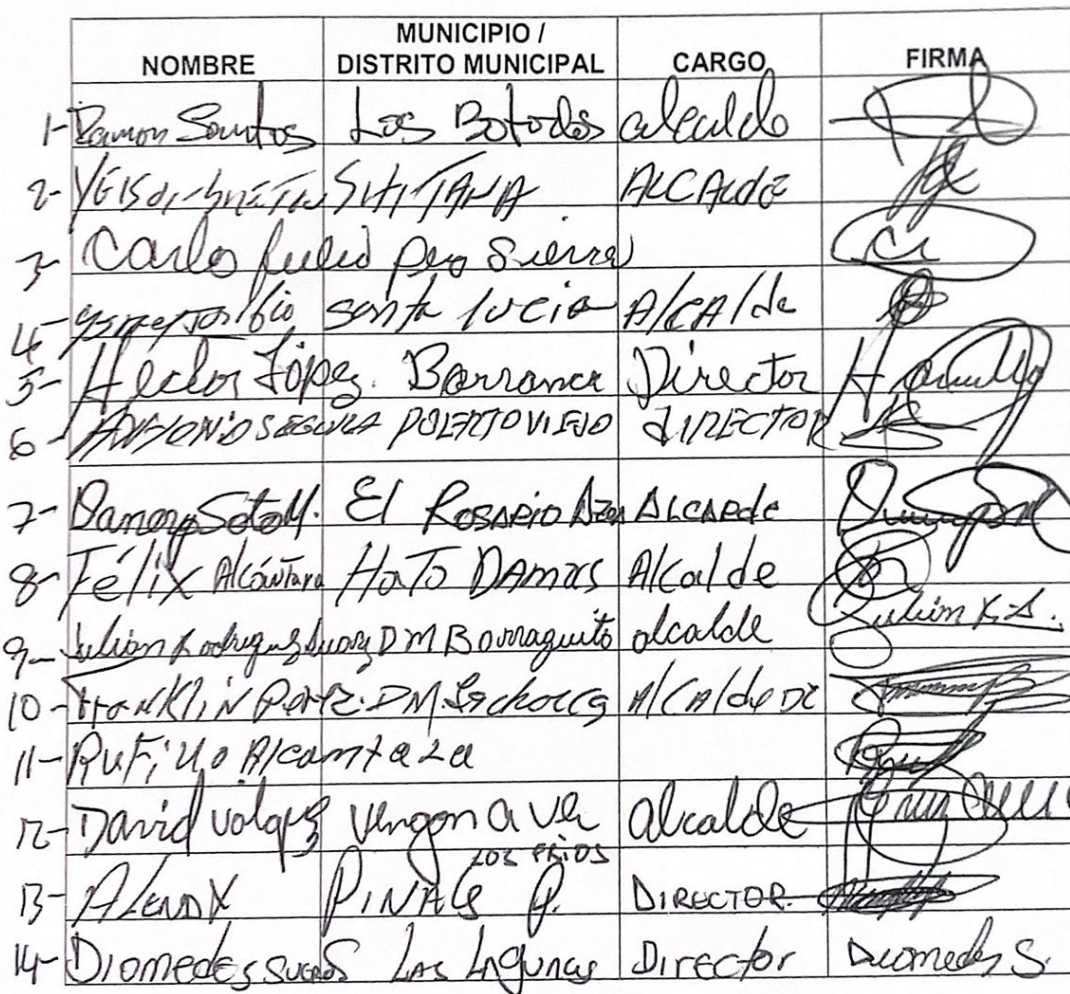 NOMBRE MUNICIPIO / DISTRITO MUNICIPAL CARGO FIRMA
1- Ramon Santos Los Botados alcalde
2- ALCALdE
3- Carlo Julio
4- santa lucia AlcAlde
5- Hector López. Barranca Director
6- ANTONIO SEGURA PUERTO VIEJO dIRECTOR
7- Danny Soto M. El ROSARIO Azua ALCARde
8- Félix Alcántara HaTo DAMAS Alcalde
9- Julian Rodriguez Suarez DM Barraquito alcalde Julian R.S.
10- FranKliN Perez. DM AlCAlde DE
11- RuFiNo Alcantara
12- David Volquez Vengan a Ver alcalde
13- LOS FRIOS DIRECTOR.
14- Diomedes Sueros LAS LAgunas Director Diomedes S.